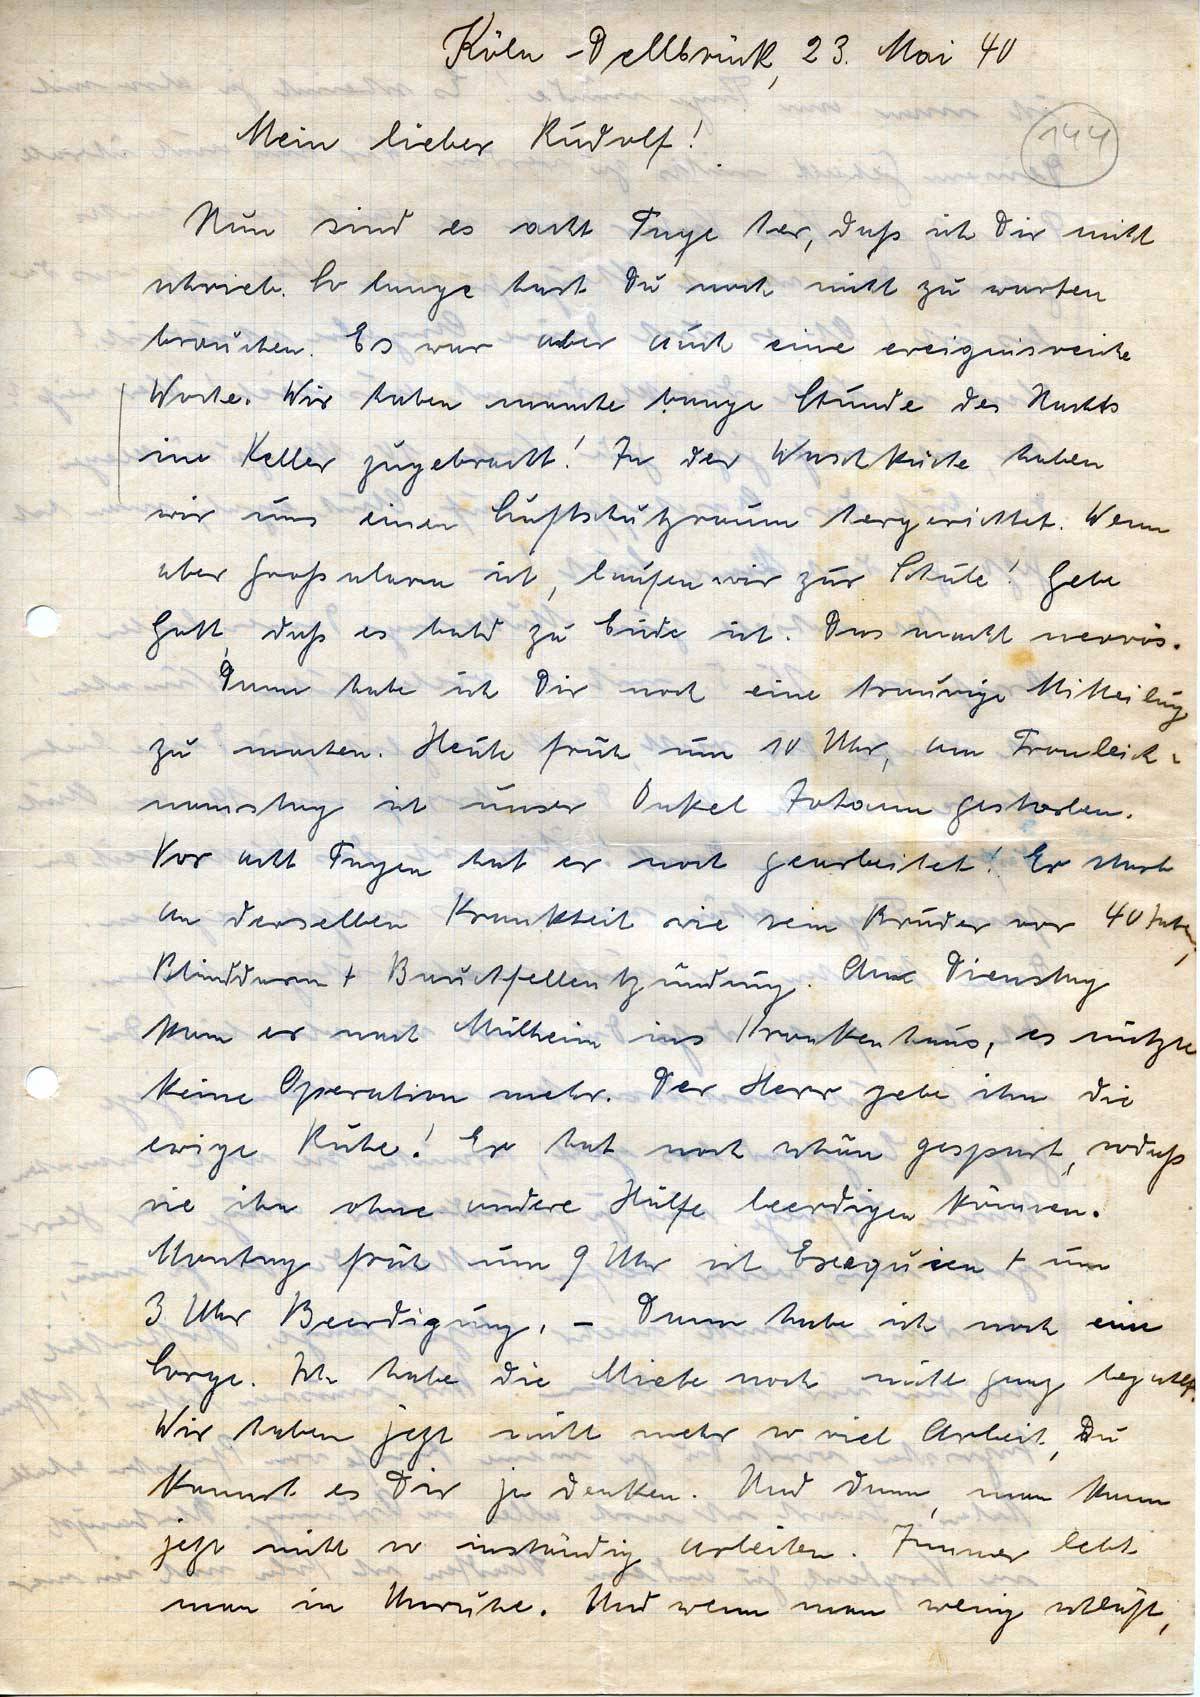 Köln-Dellbrück, 23. Mai 40
144
Mein lieber Rudolf!
Nun sind es acht Tage her, daß ich Dir nicht
schrieb. So lange hast Du noch nicht zu warten
brauchen. Es war aber auch eine ereignisreiche
Woche. Wir haben manche bange Stunde des Nachts
im Keller zugebracht! In der Waschküche haben
wir uns einen Luftschutzraum hergerichtet. Wenn
aber Großalarm ist, laufen wir zur Schule! Gebe
Gott, daß es bald zu Ende ist. Das macht nervös.
Dann habe ich Dir noch eine traurige Mitteilung
zu machen. Heute früh um 10 Uhr, am Fronleich-
namstag ist unser Onkel Johann gestorben.
Vor acht Tagen hat er noch gearbeitet! Er starb
an derselben Krankheit wie sein Bruder vor 40 Jahren,
Blinddarm + Bauchfellentzündung. Am Dienstag
kam er nach Mülheim ins Krankenhaus, es nützte
keine Operation mehr. Der Herr gebe ihm die
ewige Ruhe! Er hat noch schön gespart, sodaß
sie ihn ohne andere Hülfe beerdigen können.
Montag früh um 9 Uhr ist Exequien + um
3 Uhr Beerdigung. - Dann habe ich noch eine
Sorge. Ich habe die Miete noch nicht ganz bezahlt.
Wir haben jetzt nicht mehr so viel Arbeit, Du
kannst es Dir ja denken. Und dann, man kann
jetzt nicht so inständig arbeiten. Immer lebt
man in Unruhe. Und wenn man wenig schläft,